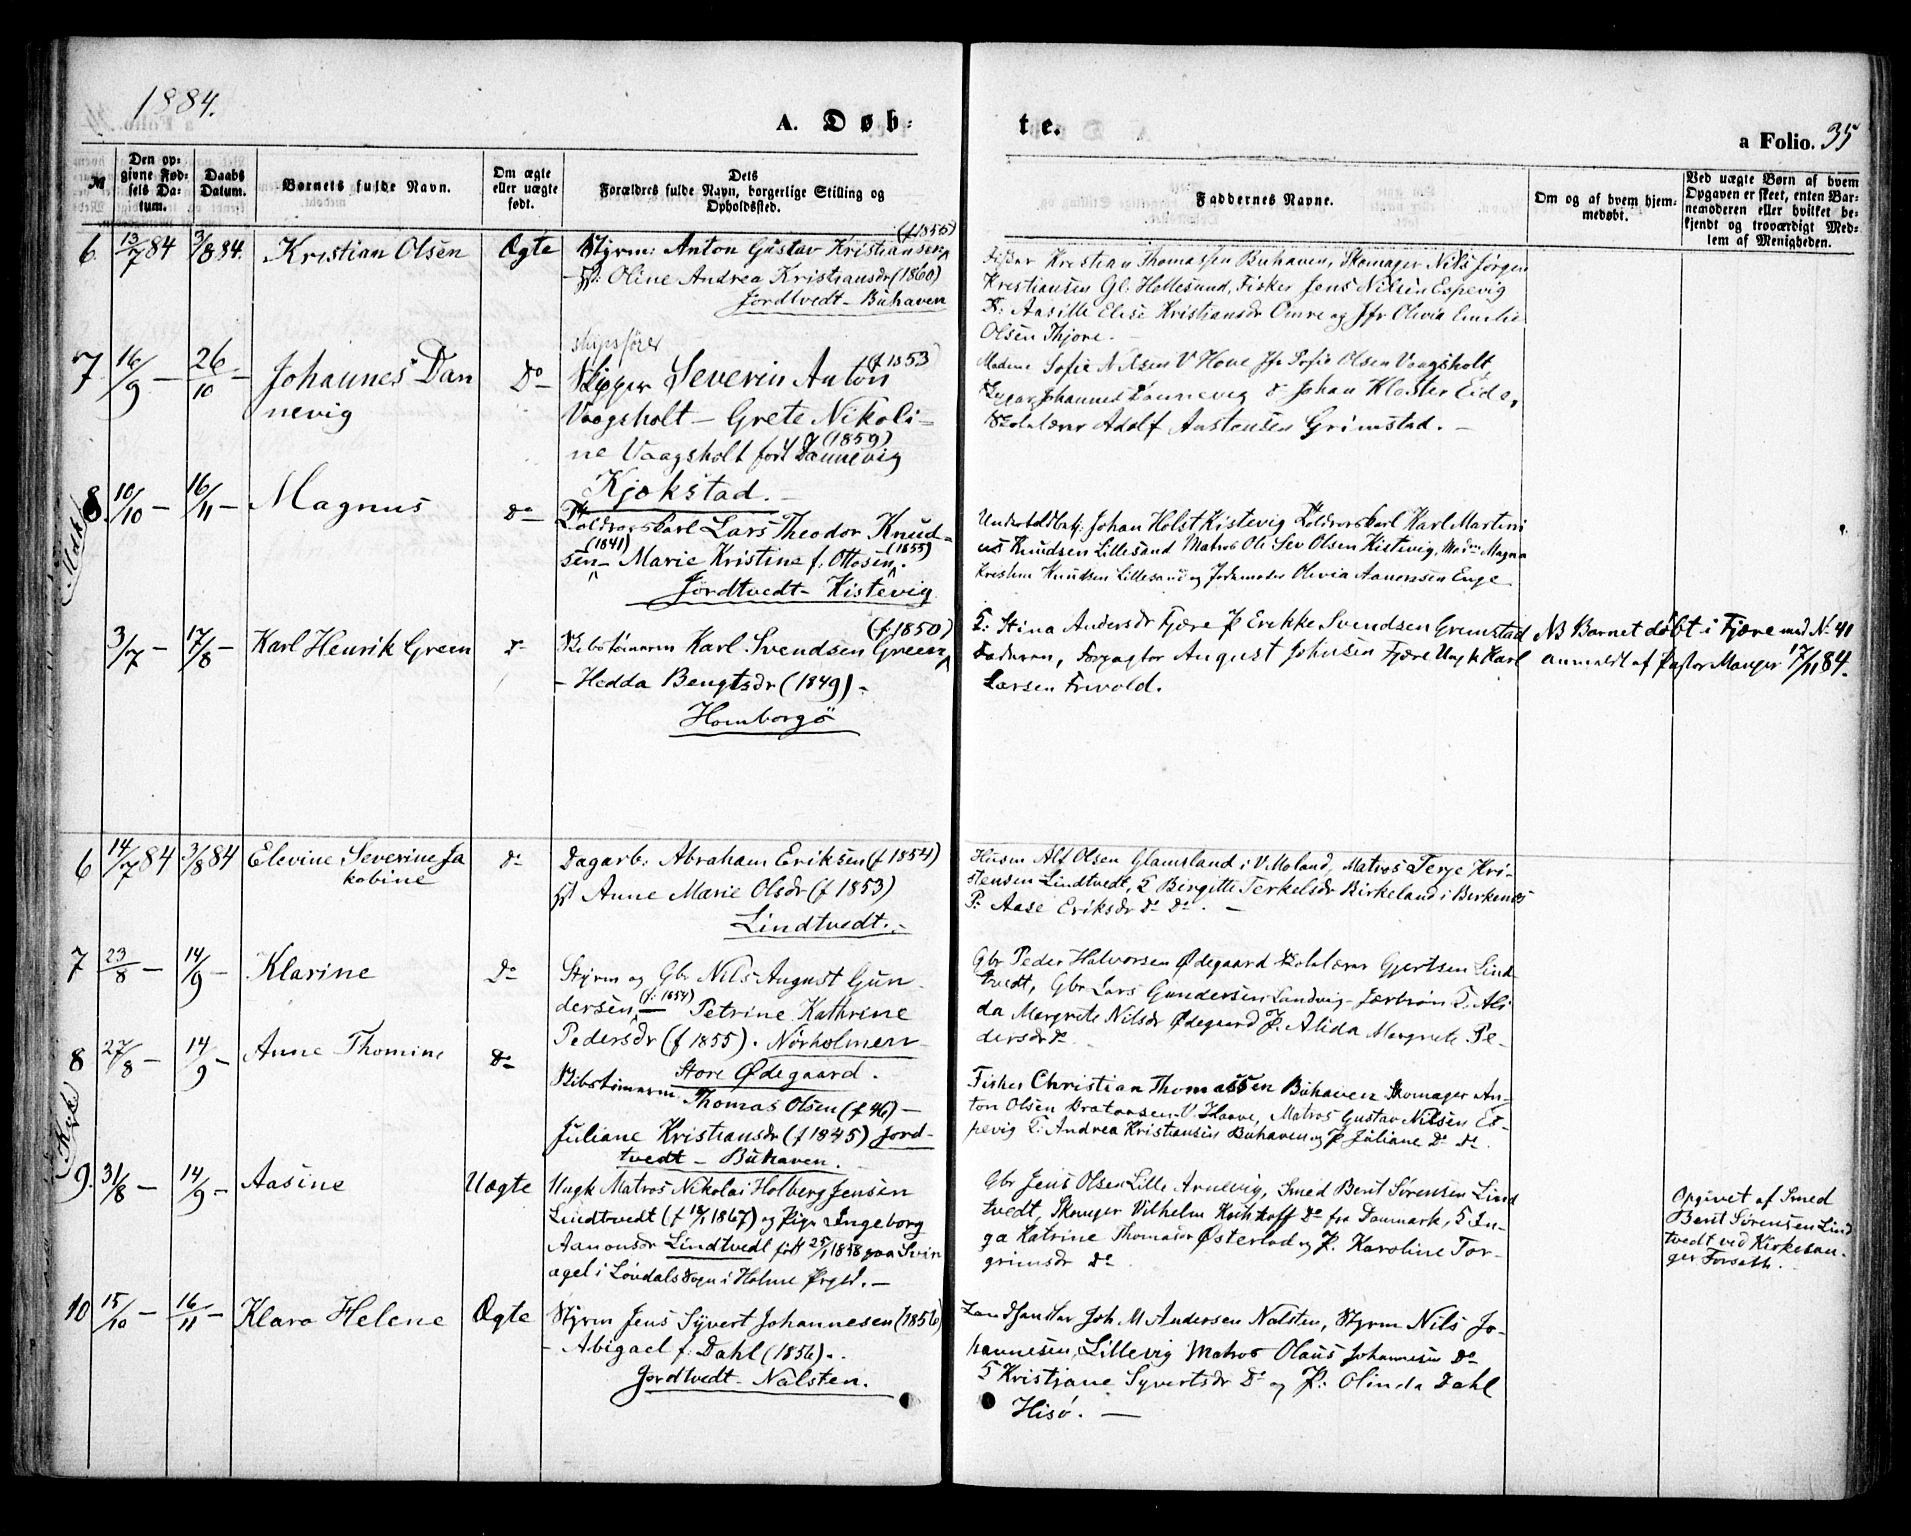 1884.
A. Døb-
te.
a Folio. 35
№
Den op-
givne Fød-
sels Da-
tum.
Daabs
Datum.
Barnets fulde Navn.
Om ægte
eller uægte
født.
Dets
Forældres fulde Navn, borgerlige Stilling og
Opholdssted.
Faddernes Navne.
Om og af hvem hjem-
medøbt.
Ved uægte Børn af hvem
Opgaven er skeet, enten Bar-
nemoderen eller hvilket be-
kjendt og troværdigt Med-
lem af Menigheden.
6. 13/7 84 3/8 84. Kristian Olsen Ægte
(f. 1856)
Styrm: Anton Gustav Kristiansen
Oline Andrea Kristiansdr (1860)
Jordtvedt - Buhaven
Kristian Thomassen Buhaven, Skomager Nils Jørgen
Kristiansen Gl. Hellesund, Fisker Jens Nilsen Espevig
Aasille Elise Kristiansdr Omre og Jfr Olivia Emilie
Olsen Thjore.
7. 16/9 - 26/10 - Johannes Dan
nevig
Do
skipsfører
(f 1853)
Skipper Severin Anton
Vaagsholt - Grete Nikoli-
ne Vaagsholt født Dannevig
(1859)
Kjøkstad. -
Madme Sofie Nilsen V Hove Jfr Sofie Olsen Vaagsholt,
Johannes Dannevig & Johan Kloster Eide,
Skolelærer Adolf Austensen Grimstad. -
8 10/10 - 16/11 - Magnus Do
Toldrorskarl Lars Theodor Knud-
(1841) (1855)
sen - Marie Kristine f. Ottosen.
Jordtvedt - Kistevig
Johan Holst Kistevig Toldrorskarl Karl Martini
us Knudsen Lillesand Matros Ole Sev Olsen Kistevig, Madm Magna
Kristine Knudsen Lillesand og Jordemoder Olivia Aanonsen Enge
3/7 - 17/8 - Karl Henrik Green Do
(f. 1850)
Skibstømmerm Karl Svendsen Green
- Hedda Bengtsdr (1849) -
Homborgö
Stina Andersdr Fjære P Erikke Svendsen Grimstad
Faderen, Forpagter August Johnsen Fjære Ungk Karl
Larsen Frivold.
NB Barnet døbt i Fjære med No 41
anmeldt af Pastor Manger 17/11 84.
6 14/7 84 3/8 84 Elevine Severine Ja
kobine
Do
Dagarb: Abraham Eriksen (f 1854)
Anne Marie Olsdr (f 1853)
Lindtvedt. -
Husm Alf Olsen Glamsland i V. Moland, Matros Terje Kri-
stensen Lindtvedt, Birgitte Terkelsdr Birkeland i Birkenes
P: Aase Eriksdr Do Do. -
7 23/8 - 14/9 - Klarine Do
Styrm og Gbr Nils August Gun-
dersen (f. 1854) - Petrine Kathrine
Pedersdr (f 1855). Nørholmen -
Store Ødegaard.
Gbr Peder Halvorsen Ødegaard Skolelærer Gjertsen Lind
tvedt, Gbr Lars Gundersen Landvig - Ali
da Margrete Nilsdr Ødegaard P. Alida Margrete Pe-
dersdr Do.
8 27/8 - 14/9 - Anne Thomine Do
Skibstømmerm
Thomas Olsen (f 46) -
Juliane Kristiansdr (f 1845) Jord-
tvedt - Buhaven.
Fisker Christian Thomassen Buhaven Skomager An-
ton Olsen V. Haave, Matros Gustav Nilsen Es-
pevig Andrea Kristiansen Buhaven og P Juliane Do Do.
9. 31/8 - 14/9 - Aasine Uægte
Ungk Matros Nikolai Holberg Jensen
Lindtvedt (f 1867) og Pige Ingeborg
Aanonsdr Lindtvedt født 25/1 1858 paa Svin
øgel i Løvdals Sogn i Holme Prgjld. -
Gbr Jens Olsen Lille Arnevig, Smed Berit Sørensen Lind
tvedt, Skomager Vilhelm Do fra Danmark, In-
ga Katrine Østerlod og P. Karoline Tor-
grimsdr Do
Opgivet af Smed
Berit Sørensen Lind
tvedt ved Kirkesan-
ger Forsath.
10 15/10 - 16/11 - Klara Helene Ægte
Styrm Jens Syvert Johannesen (1856)
- Abigael f. Dahl (1856).
Jordtvedt - Nalsten.
Joh M Andersen Nalsten, Styrm Nils Jo-
hannesen, Lillevig Matros Olaus Johannesen Do
Kristiane Syvertsdr Do og P: Olinda Dahl
Hisø. -